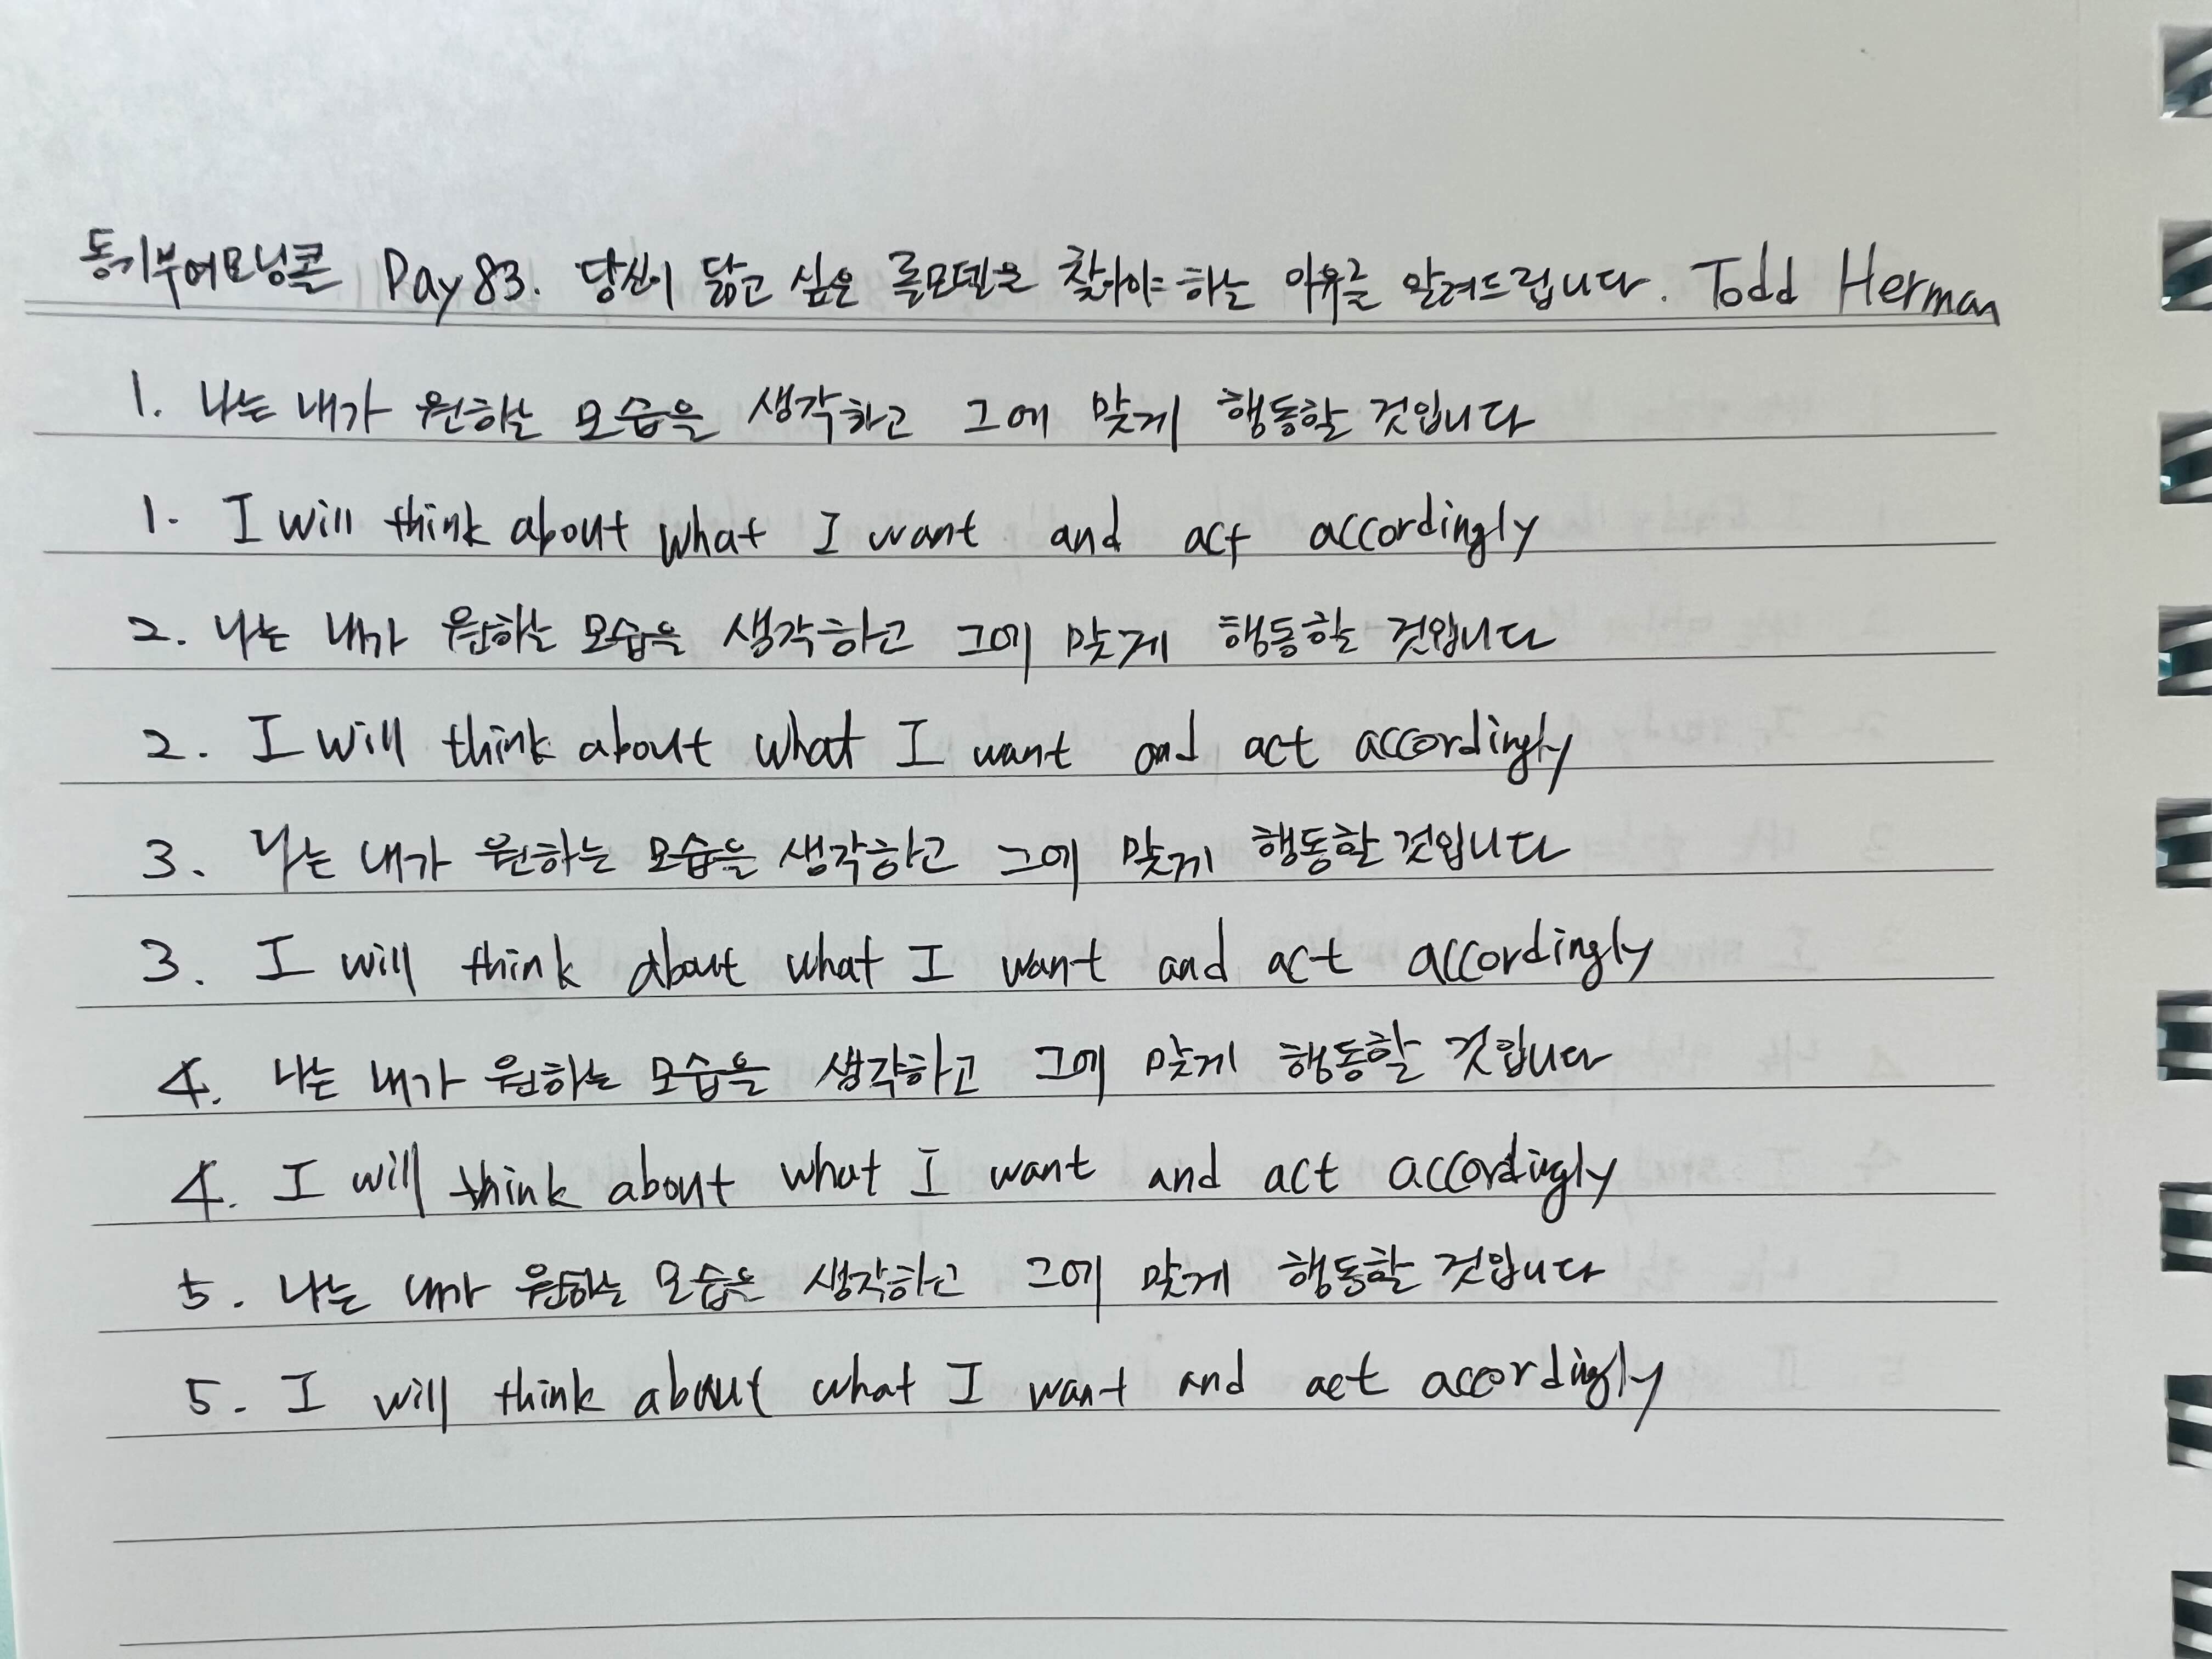 동기부여모닝콜 Day 83. 당신이 닮고 싶은 롤모델을 찾아야 하는 이유를 알려드립니다. Todd Herman
1. 나는 내가 원하는 모습을 생각하고 그에 맞게 행동할 것입니다
1. I will think about what I want and act accordingly
2. 나는 내가 원하는 모습을 생각하고 그에 맞게 행동할 것입니다
2. I will think about what I want and act accordingly
3. 나는 내가 원하는 모습을 생각하고 그에 맞게 행동할 것입니다
3. I will think about what I want and act accordingly
4. 나는 내가 원하는 모습을 생각하고 그에 맞게 행동할 것입니다
4. I will think about what I want and act accordingly
5. 나는 내가 원하는 모습을 생각하고 그에 맞게 행동할 것입니다
5. I will think about what I want and act accordingly